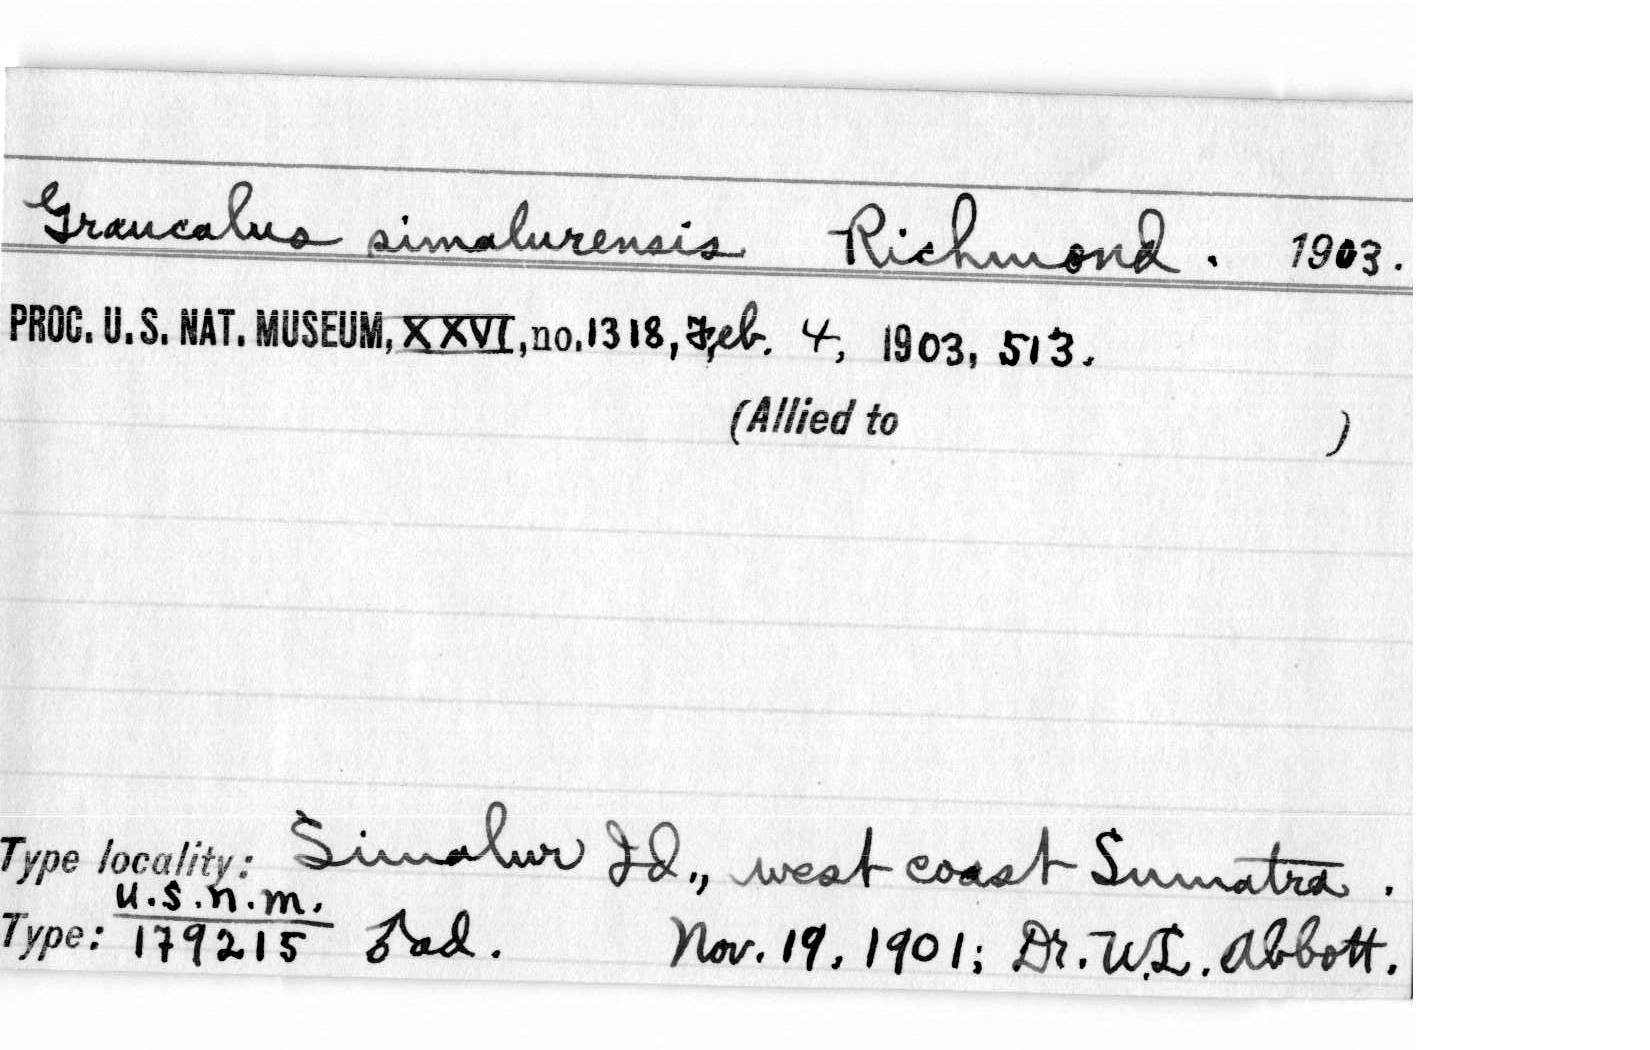 Graucalus simalurensis Richmond. 1903.
PROC. U.S. NAT. MUSEUM, XXVI, no. 1318, Feb. 4, 1903, 513.
(Allied to )
Type locality: Simalur Id., west coast Sumatra.
U.S.N.M.
Type: 179215 ♂ ad. Nov. 19, 1901; Dr. W.L. Abbott.